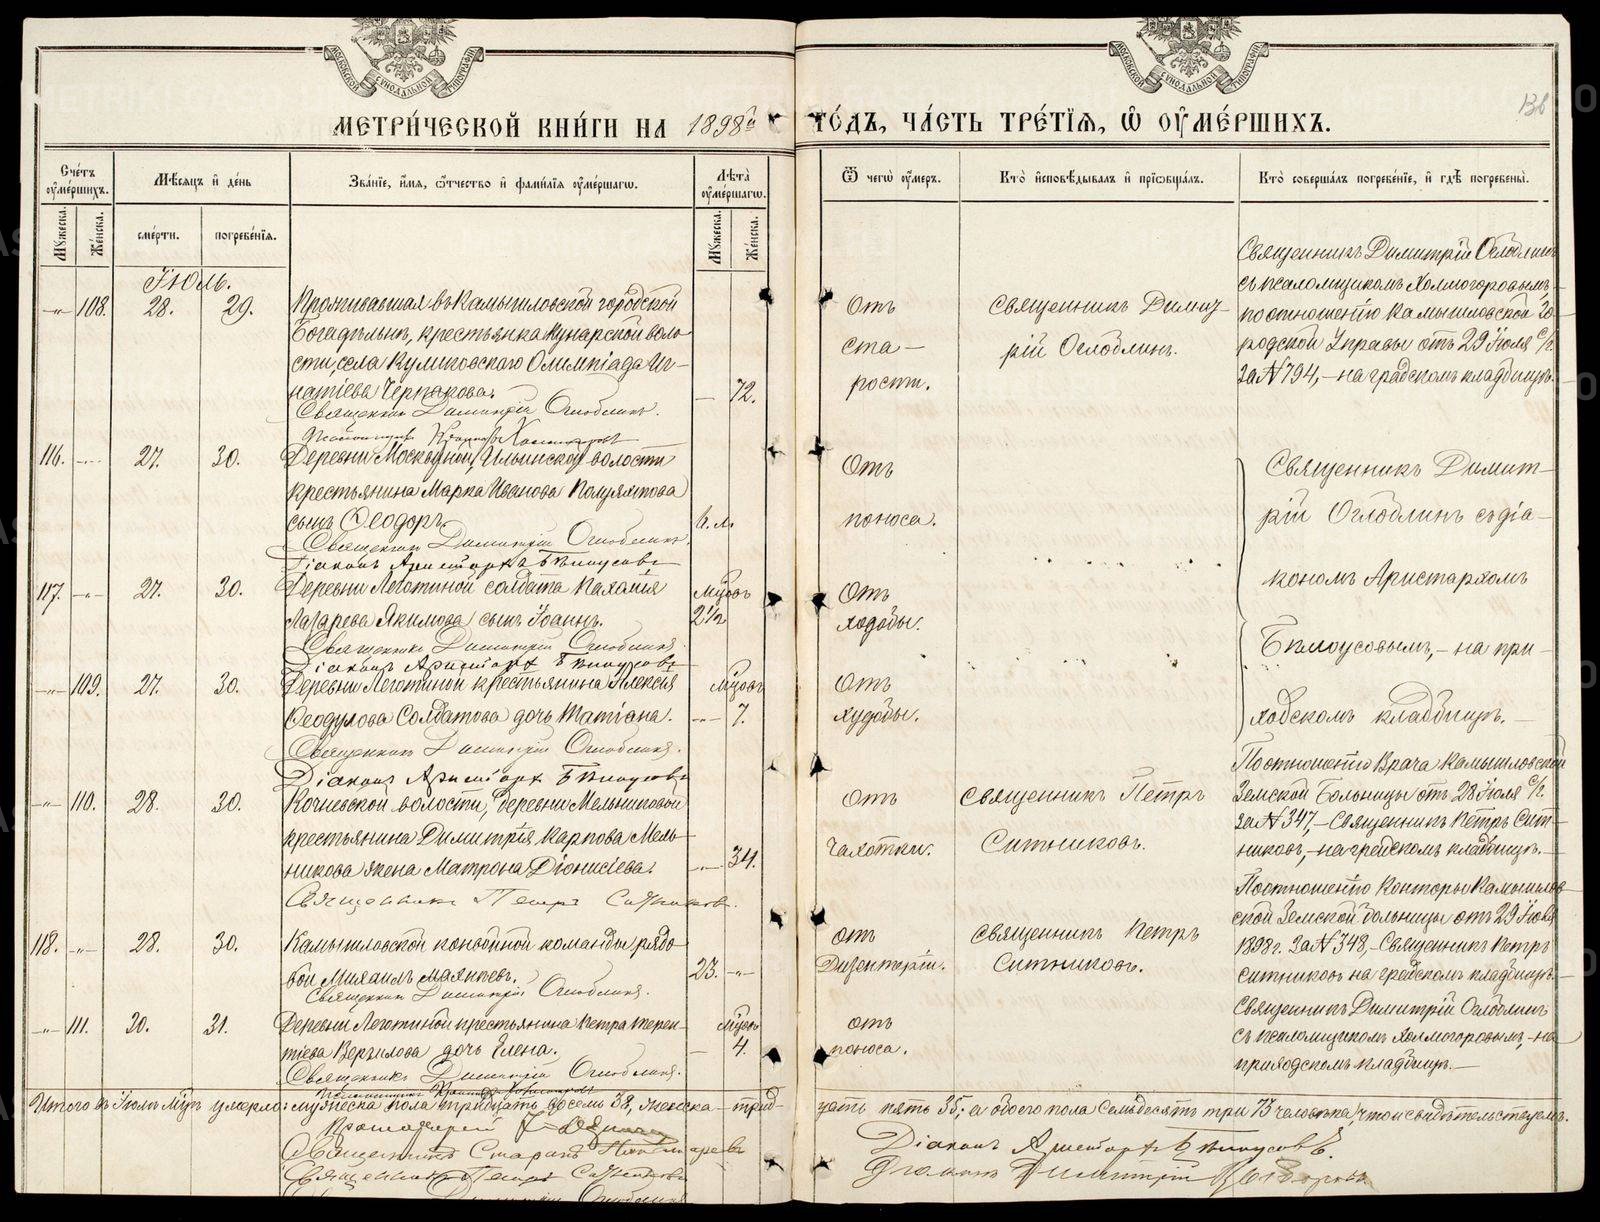 МОСКОВСКОЙ СѴНОДАЛЬНОЙ ТИПОГРАФІИ
МОСКОВСКОЙ СѴНОДАЛЬНОЙ ТИПОГРАФІИ
МЕТРИ́ЧЕСКОЙ КНИ́ГИ НА 1898й ГО́ДЪ, ЧА́СТЬ ТРЕ́ТІѦ, Ѡ ОУ҆МЕ́РШИХЪ.
Сче́тъ оу҆ме́ршихъ.
Мѣсѧцъ и҆ де́нь
Зва́ніе, и҆́мѧ, ѻ҆́тчество и҆ фами́ліѧ оу҆ме́ршагѡ.
Лѣта̀ оу҆ме́ршагѡ.
Ѿ чегѡ̀ оу҆́меръ.
Кто̀ и҆сповѣ́дывалъ и҆ прїѡбща́лъ.
Кто̀ соверша́лъ погребе́ніе, и҆ гдѣ̀ погребены̀.
Мꙋ́жеска.
Же́нска.
сме́рти.
погребе́ніѧ.
Мꙋ́жеска.
Же́нска.
Іюль.
–"– 108. 28. 29. Проживавшая въ Камышловской городской
Богадѣльнѣ, крестьянка Кунарской воло-
сти, села Куликовскаго Олимпіада Иг-
натіева Черпакова. – 72.
Священникъ Димитрій Оглоблинъ.
Отъ
ста-
рости.
Священникъ Димит-
рій Оглоблинъ.
Священникъ Димитрій Оглоблинъ
съ псаломщикомъ Холмогоровымъ,
по отношенію Камышловской Го-
родской Управы отъ 29 Іюля с/г.
за № 794, – на градскомъ кладбищѣ.
116. –"– 27. 30. Деревни Московиной, Ильинской волости
крестьянина Марка Иванова Полуяхтова
сынъ Ѳеодоръ. 6 м.
Священникъ Димитрій Оглоблинъ.
Діаконъ Аристархъ Бѣлоусовъ
Отъ
поноса.
Священникъ Димит-
рій Оглоблинъ съ діа-
кономъ Аристархомъ
Бѣлоусовымъ, – на при-
ходскомъ кладбищѣ. –
117. –"– 27. 30. Деревни Леготиной солдата Пахомія
Лазарева Якимова сынъ Іоаннъ. мцовъ 2½
Священникъ Димитрій Оглоблинъ
Діаконъ Аристархъ Бѣлоусовъ
Отъ
худобы.
–"– 109. 27. 30. Деревни Леготиной крестьянина Алексія
Ѳеодулова Солдатова дочь Татіана. –"– мцовъ 7.
Священникъ Димитрій Оглоблинъ.
Діаконъ Аристархъ Бѣлоусовъ
Отъ
худобы.
–"– 110. 28. 30. Кочневской волости, деревни Мельниковой
крестьянина Димитрія Карпова Мель-
никова жена Матрона Діонисіева. –"– 34.
Священникъ Петръ Ситниковъ.
Отъ
чахотки.
Священникъ Петръ
Ситниковъ.
По отношенію Врача Камышловской
Земской Больницы отъ 28 Іюля с/г.
за № 347, – Священникъ Петръ Сит-
никовъ, – на градскомъ кладбищѣ. –
118. –"– 28. 30. Камышловской конвойной команды рядо-
вой Михаилъ Малятѣевъ. 23. –"–
Священникъ Димитрій Оглоблинъ.
отъ
Дизентеріи.
Священникъ Петръ
Ситниковъ.
По отношенію Конторы Камышлов-
ской Земской больницы отъ 29 Іюля
1898 г. за № 348, – Священникъ Петръ
Ситниковъ на градскомъ кладбищѣ. –
–"– 111. 30. 31. Деревни Леготиной крестьянина Петра Терен-
тіева Вергилова дочь Елена. – мцовъ 4.
Священникъ Димитрій Оглоблинъ.
отъ
поноса.
Священникъ Димитрій Оглоблинъ
съ псаломщикомъ Холмогоровымъ, – на
приходскомъ кладбищѣ. –
Итого въ Іюлѣ мцѣ умерло: мужеска пола тридцать восемь 38, женска – трид-
цать пять 35; а обоего пола семьдесятъ три 73 человѣка, что и свидѣтельствуемъ.
Протоіерей
Священникъ
Священникъ Петръ Ситниковъ
Димитрій Оглоблинъ
Діаконъ Аристархъ Бѣлоусовъ.
Димитрій